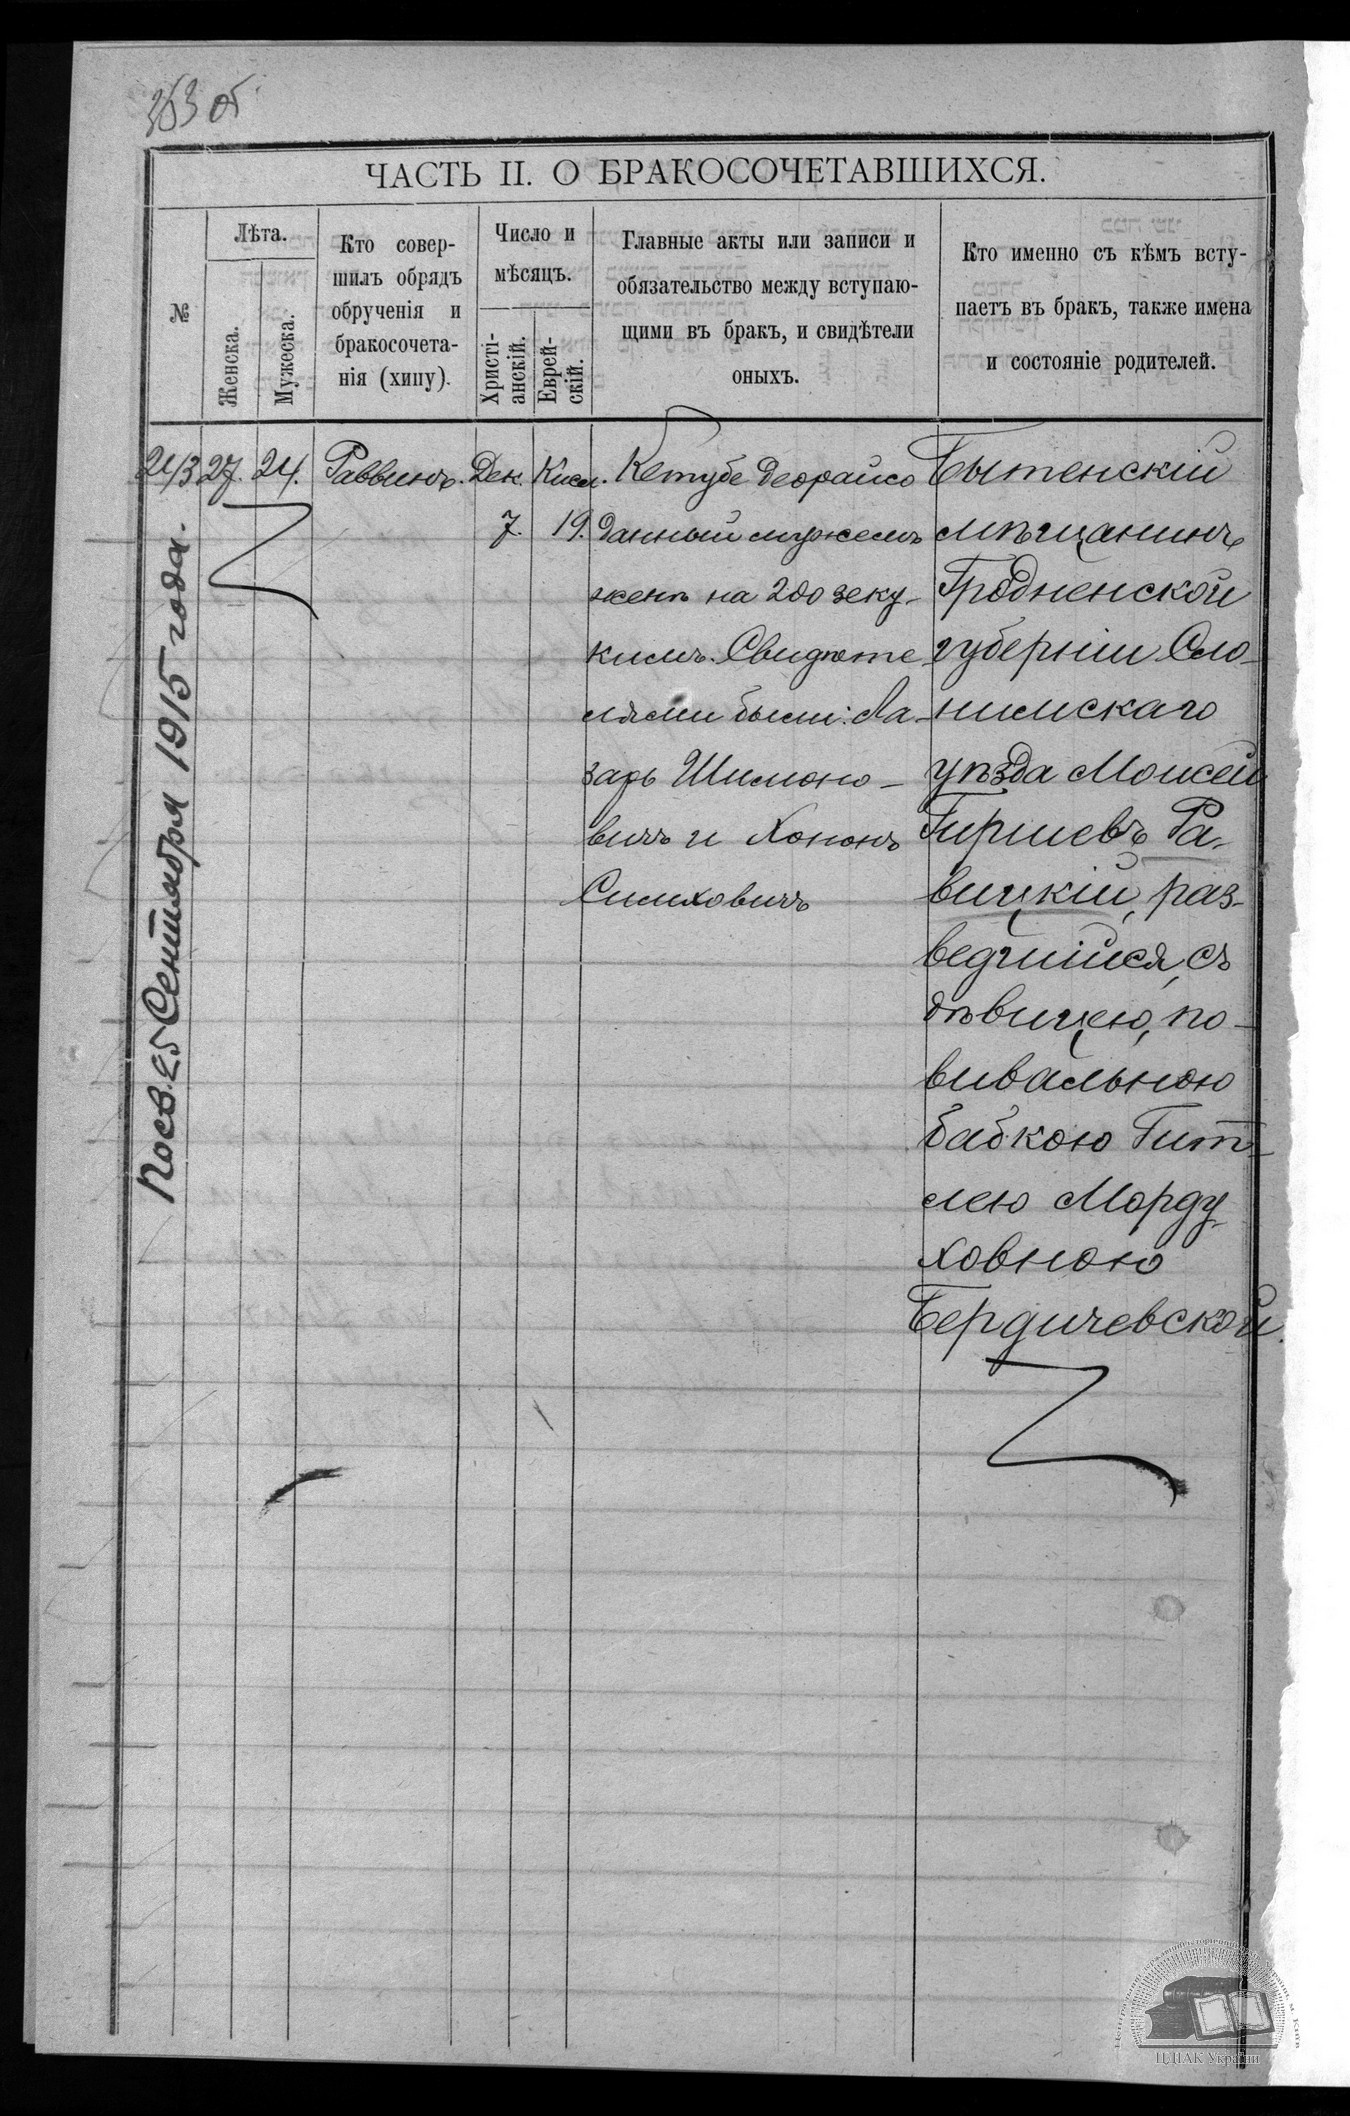 353 об.
ЧАСТЬ II. О БРАКОСОЧЕТАВШИХСЯ.
№
Лѣта.
Женска.
Мужеска.
Кто совер-
шилъ обрядъ
обрученія и
бракосочета-
нія (хипу).
Число и
мѣсяцъ.
Христі-
анскій.
Еврей-
скій.
Главные акты или записи и
обязательство между вступаю-
щими въ бракъ, и свидѣтели
оныхъ.
Кто именно съ кѣмъ всту-
паетъ въ бракъ, также имена
и состояніе родителей.
213
27.
24.
Раввинъ.
Дек.
7.
Кисл.
19.
Кетубе деорайсо
данный мужемъ
женѣ на 200 зеку-
кимъ. Свидѣте-
лями были: Ла-
зарь Шимоно-
вичъ и Хононъ
Симховичъ
Бытенскій
мѣщанинъ
Гродненской
губерніи Сло-
нимскаго
уѣзда Моисей
Гиршевъ Ра-
вицкій, раз-
ведшийся, съ
дѣвицею, по-
вивальною
бабкою Гит-
лею Морду-
ховною
Бердичевской.
Посв. 25 Сентября 1915 года.
ЦДІАК України